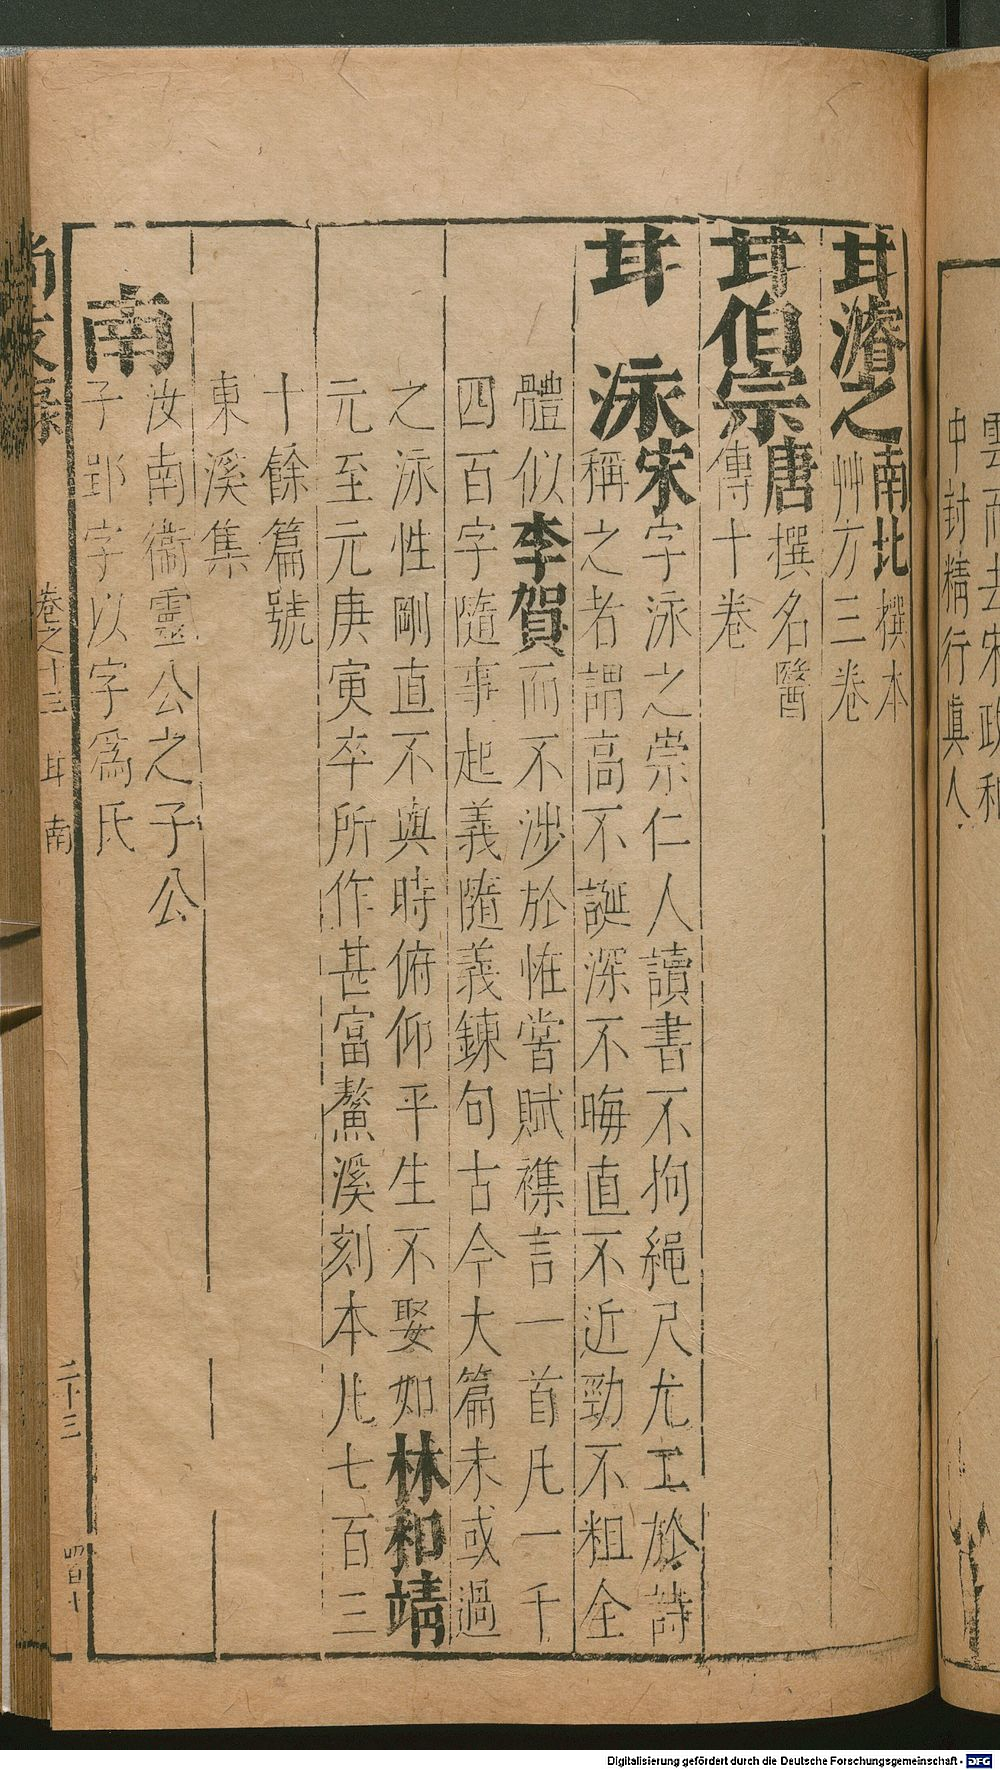 雲而去宋政和
中封精行眞人
甘濬之南北撰本
艸方三卷
甘伯宗唐撰名醫
傳十卷
甘泳宋字泳之崇仁人讀書不拘繩尺尤工於詩
稱之者謂高不誕深不晦直不近勁不粗全
體似李賀而不涉於恠嘗賦襍言一首凡一千
四百字隨事起義隨義鍊句古今大篇未或過
之泳性剛直不與時俯仰平生不娶如林和靖
元至元庚寅卒所作甚富鰲溪刻本凡七百三
十餘篇號
東溪集
南汝南衞靈公之子公
子郢字以字爲氏
尚友錄
卷之十三 甘 南
二十三
四百十
Digitalisierung gefördert durch die Deutsche Forschungsgemeinschaft - DFG